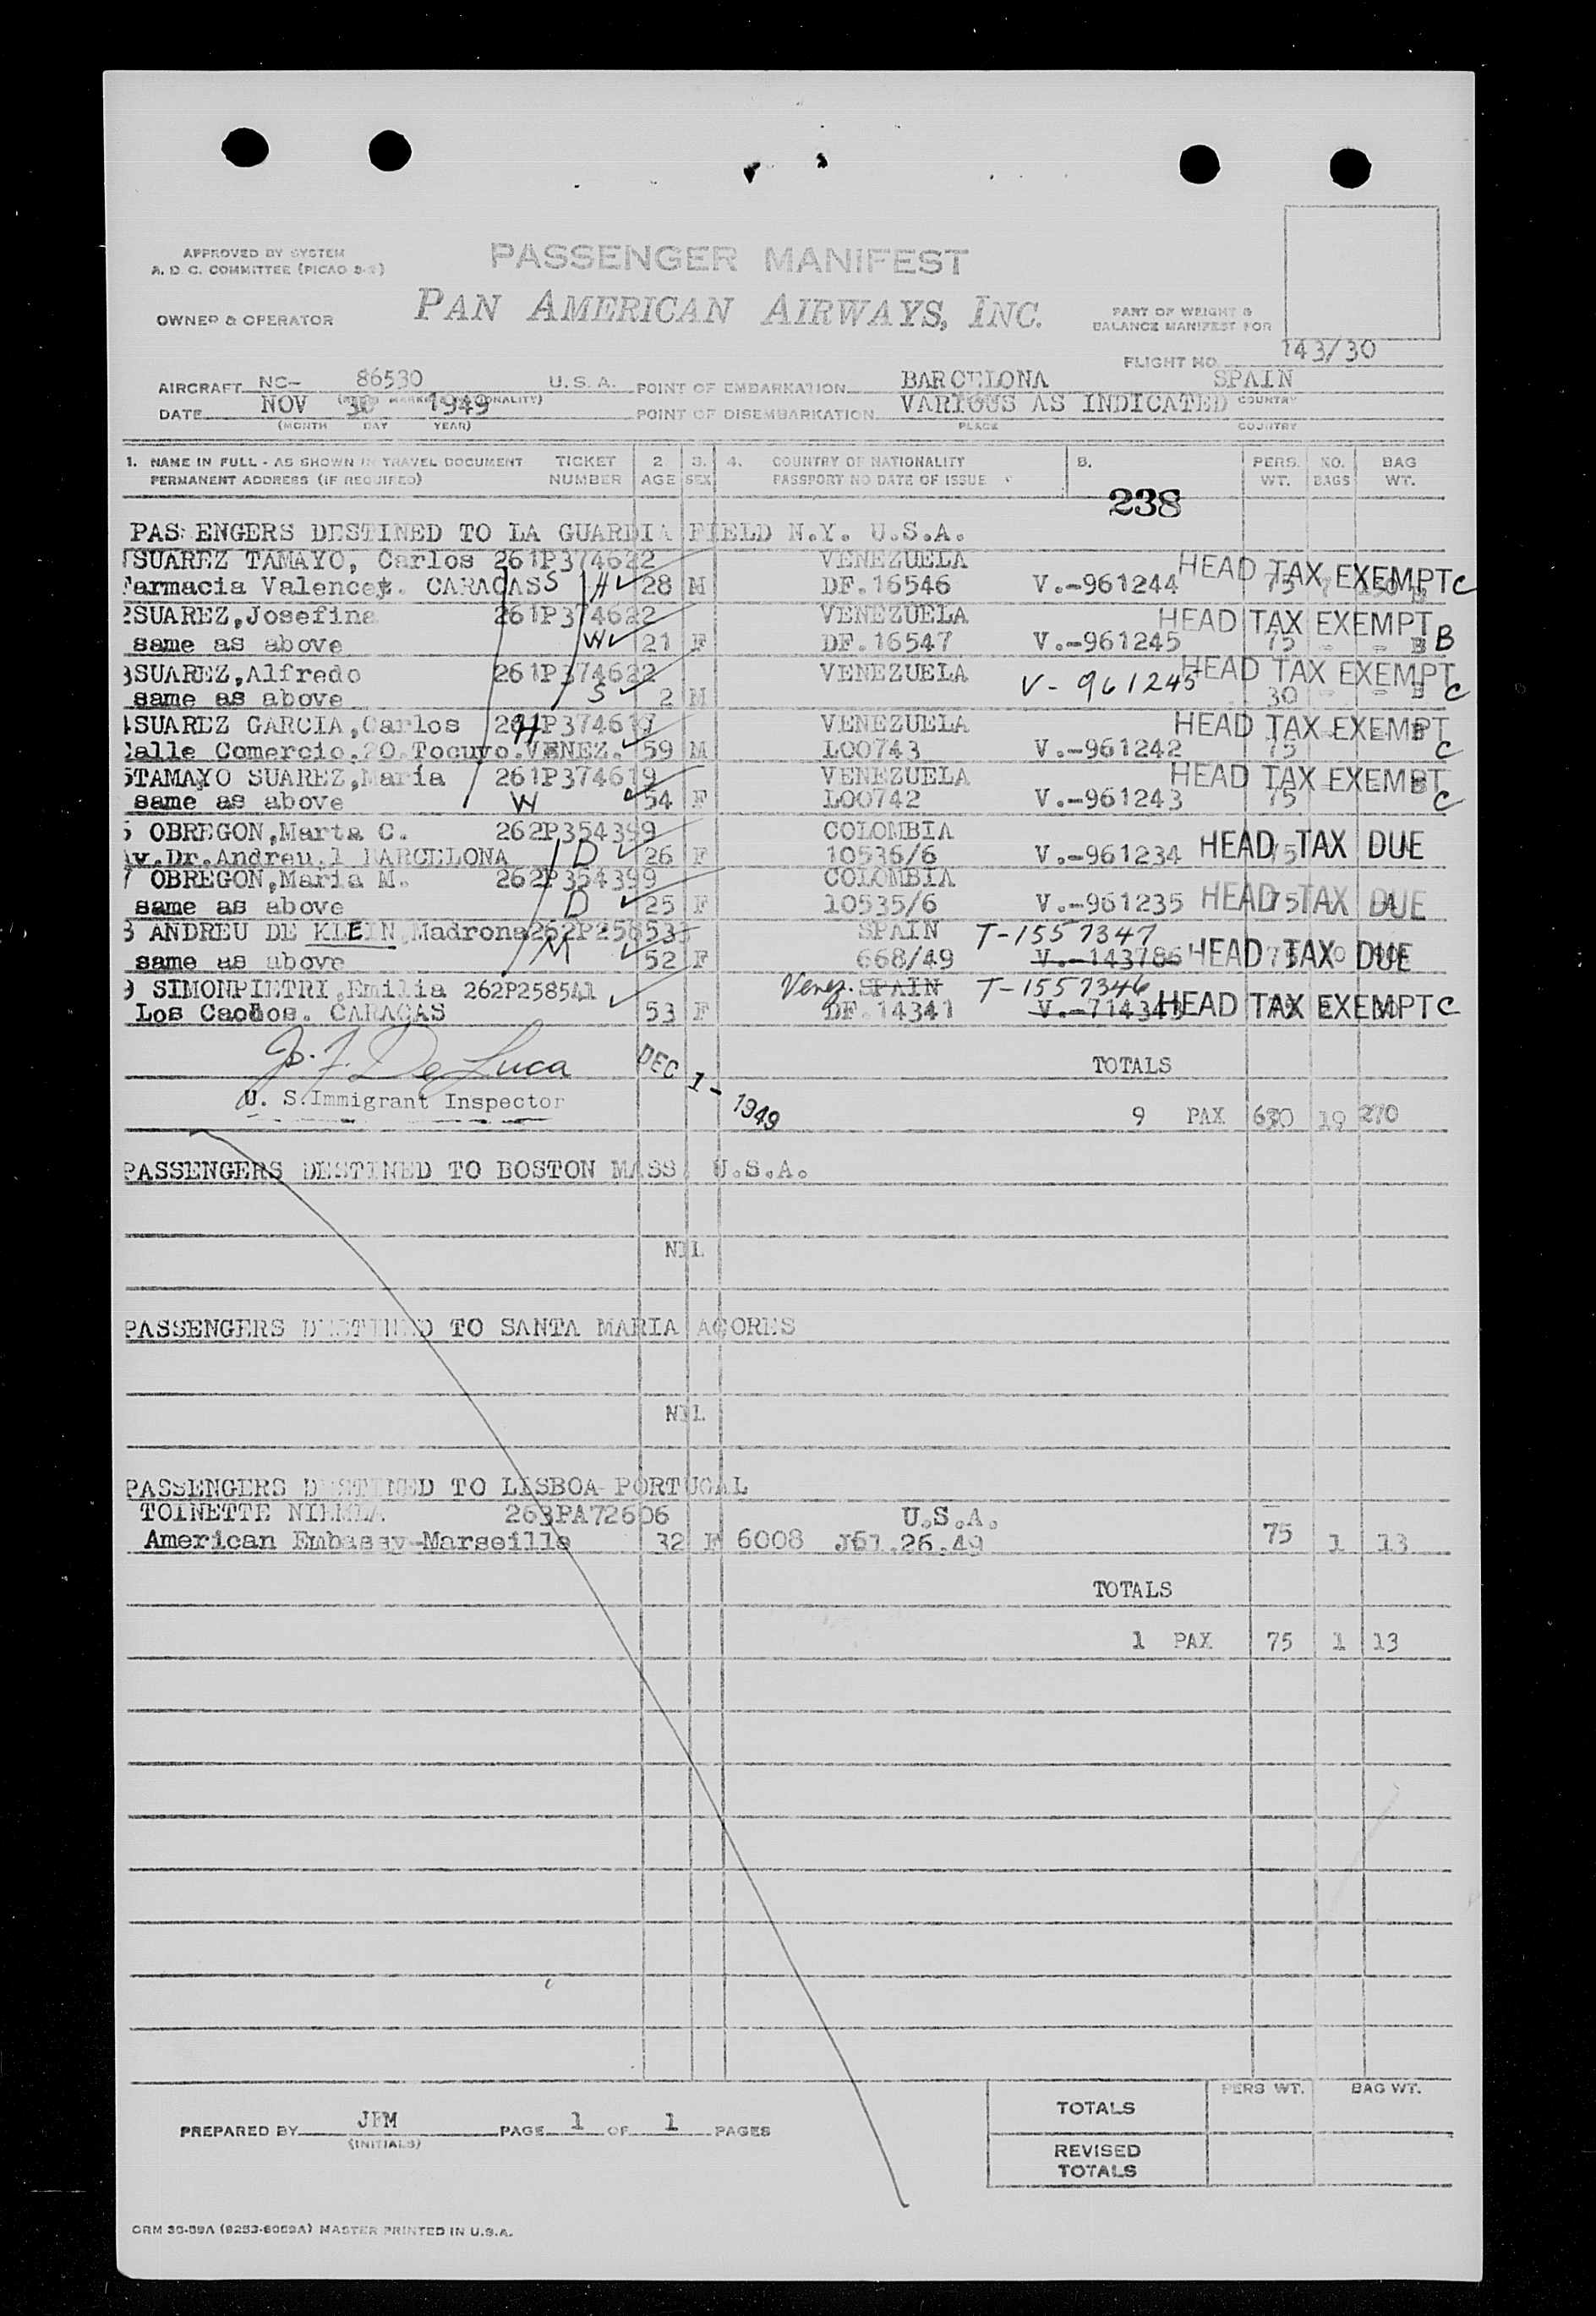 APPROVED BY SYSTEM
A. D. C. COMMITTEE (PICAO 8-2)
PASSENGER MANIFEST
OWNER & OPERATOR
PAN AMERICAN AIRWAYS, INC.
PART OF WEIGHT &
BALANCE MANIFEST FOR
FLIGHT NO. 143/30
AIRCRAFT NC- 86530 U.S.A. POINT OF EMBARKATION BARCELONA SPAIN
DATE NOV 30 1949 POINT OF DISEMBARKATION VARIOUS AS INDICATED COUNTRY
(MONTH DAY YEAR) PLACE COUNTRY
1. NAME IN FULL - AS SHOWN IN TRAVEL DOCUMENT TICKET 2 3. 4. COUNTRY OF NATIONALITY 5. PERS. NO. BAG
PERMANENT ADDRESS (IF REQUIRED) NUMBER AGE SEX PASSPORT NO DATE OF ISSUE WT. BAGS WT.
238
PAS ENGERS DESTINED TO LA GUARDIA FIELD N.Y. U.S.A.
SUAREZ TAMAYO, Carlos 261P374622 VENEZUELA HEAD TAX EXEMPT C
Farmacia CARACAS S H 28 M DF.16546 V.-961244 75 7
2 SUAREZ, Josefina 261P374622 VENEZUELA HEAD TAX EXEMPT
same as above W 21 F DF.16547 V.-961245 75 - - B
3 SUAREZ, Alfredo 261P374622 VENEZUELA HEAD TAX EXEMPT
same as above S 2 M V-961245 30 - - C
4 SUAREZ GARCIA, Carlos H VENEZUELA HEAD TAX EXEMPT
Calle Comercio.20.Tocuyo.VENEZ. 59 M L00743 V.-961242 75 C
5 TAMAYO SUAREZ, Maria 261P374619 VENEZUELA HEAD TAX EXEMPT
same as above W 54 F L00742 V.-961243 75 C
OBREGON, Marta C. 262P354399 COLOMBIA
Av.Dr.Andreu.1 BARCELONA D 26 F 10536/6 V.-961234 HEAD TAX DUE
7 OBREGON, Maria M. 262P354399 COLOMBIA
same as above D 25 F 10535/6 V.-961235 HEAD TAX DUE
ANDREU DE KLEIN, Madrona SPAIN T-1557347
same as above M 52 F 668/49 V.-143786 HEAD TAX DUE
9 SIMONPIETRI, Emilia 262P258541 Venez. SPAIN T-1557346
Los CARACAS 53 F DF.14341 HEAD TAX EXEMPT C
J. F. De Luca DEC 1 - 1949 TOTALS
U. S. Immigrant Inspector
9 PAX 630 19 270
PASSENGERS DESTINED TO BOSTON MASS. U.S.A.
NIL
PASSENGERS DESTINED TO SANTA MARIA AÇORES
NIL
PASSENGERS DESTINED TO LISBOA PORTUGAL
TOINETTE 263PA72606 U.S.A.
American Embassy-Marseille 32 F 6008 26.49 75 1 13
TOTALS
1 PAX 75 1 13
PERS WT. BAG WT.
TOTALS
PREPARED BY JFM PAGE 1 OF 1 PAGES
(INITIALS)
REVISED
TOTALS
ORM 36-59A (8253-6059A) MASTER PRINTED IN U.S.A.